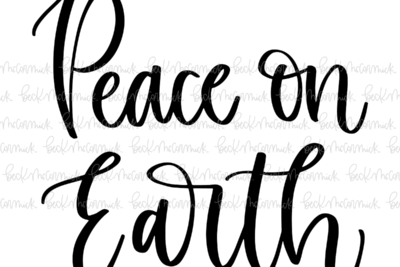 Peace on
Earth